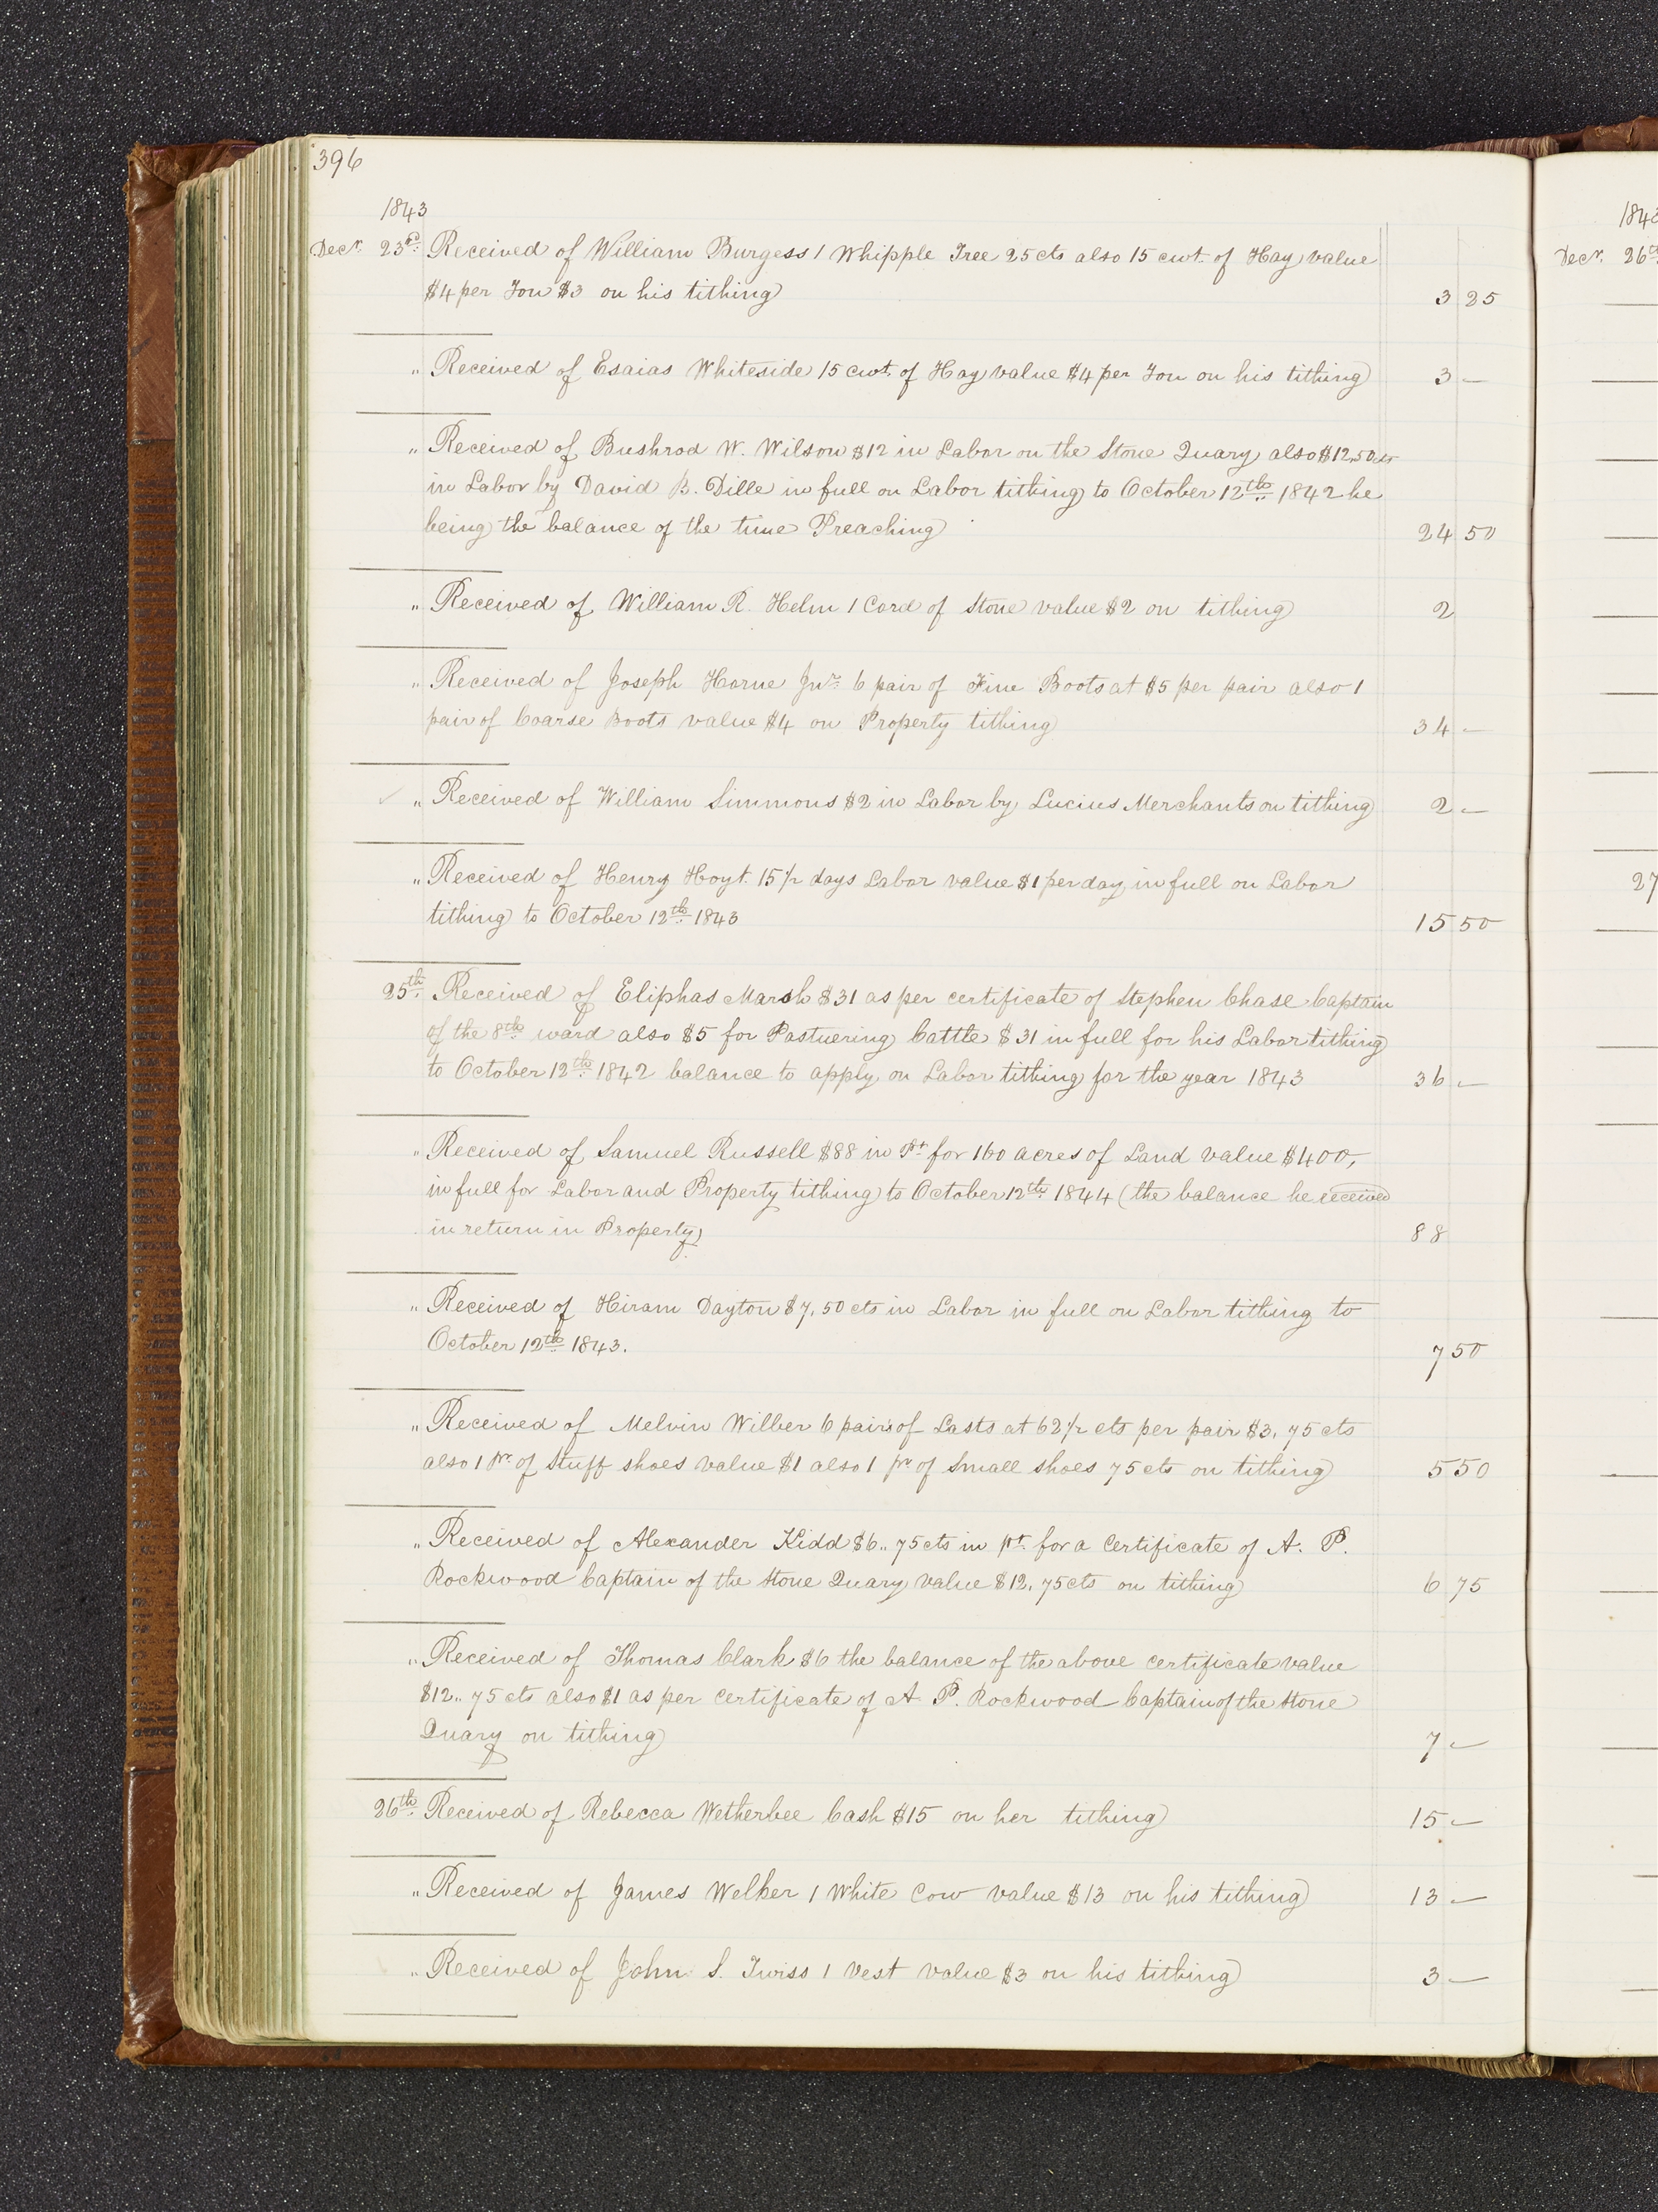 396
1843
Decr. 23rd. Received of William Burgess 1 Whipple Tree 25 cts also 15 cwt. of Hay value
$4 per Ton $3 on his tithing 3 25
" Received of Esaias Whiteside 15 cwt. of Hay value $4 per Ton on his tithing 3 —
" Received of Bushrod W. Wilson $12 in Labor on the Stone Quary also $12,50 cts
in Labor by David B. Dille in full on Labor tithing to October 12th. 1842 he
being the balance of the time Preaching 24 50
" Received of William R. Helm 1 Cord of Stone value $2 on tithing 2
" Received of Joseph Horne Jnr. 6 pair of Fine Boots at $5 per pair also 1
pair of Coarse Boots value $4 on Property tithing 34 —
" Received of William Simmons $2 in Labor by Lucius Merchants on tithing 2 —
" Received of Henry Hoyt. 15 1/2 days Labor value $1 per day in full on Labor
tithing to October 12th. 1843 15 50
25th. Received of Eliphas Marsh $31 as per certificate of Stephen Chase Captain
of the 8th. ward also $5 for Pastuering Cattle $31 in full for his Labor tithing
to October 12th. 1842 balance to apply on Labor tithing for the year 1843 36 —
" Received of Samuel Russell $88 in Pt. for 160 acres of Land value $400,
in full for Labor and Property tithing to October 12th. 1844 (the balance he received
in return in Property) 88
" Received of Hiram Dayton $7,50 cts in Labor in full on Labor tithing to
October 12th. 1843. 7 50
" Received of Melvin Wilber 6 pairs of Lasts at 62 1/2 cts per pair $3,75 cts
also 1 Pr. of Stuff shoes value $1 also 1 pr of Small shoes 75 cts on tithing 5 50
" Received of Alexander Kidd $6..75 cts in pt. for a Certificate of A. P.
Rockwood Captain of the Stone Quary value $12,75 cts on tithing 6 75
" Received of Thomas Clark $6 the balance of the above certificate value
$12..75 cts also $1 as per certificate of A. P. Rockwood Captain of the Stone
Quary on tithing 7 —
26th. Received of Rebecca Wetherbee Cash $15 on her tithing 15 —
" Received of James Welker 1 White Cow value $13 on his tithing 13 —
" Received of John S. Twiss 1 Vest value $3 on his tithing 3 —
Decr. 26th
27